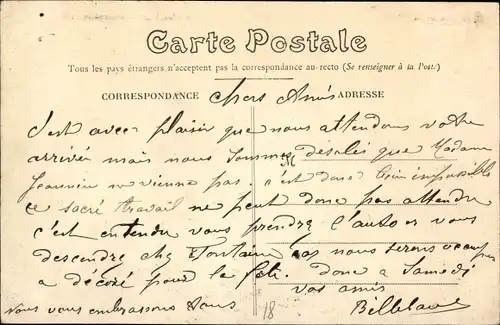 Carte Postale
Tous les pays étrangers n'acceptent pas la correspondance au recto (Se renseigner à la Poste.)
CORRESPONDANCE Chers Amis ADRESSE
c'est avec plaisir que nous attendons votre
arrivée mais nous sommes désolés que Madame
ne vienne pas c'est donc bien impossible
ce sacré travail ne peut donc pas attendre
c'est entendu vous prendrez l'auto et vous
descendrez chez Fontaine nous serons occupés
a décoré pour la fête. donc a Samedi
Nous vous embrassons tous 18 vos amis